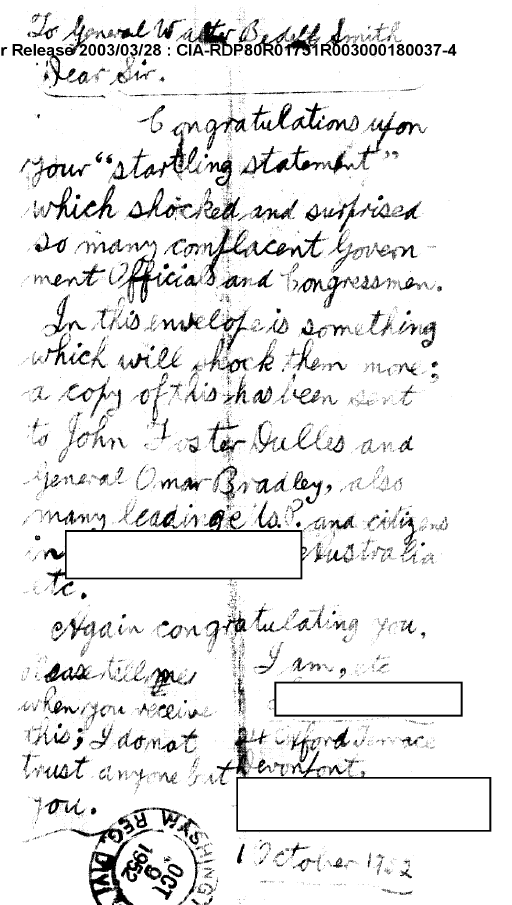 To General Walter Bedell Smith
r Release 2003/03/28 : CIA-RDP80R01731R003000180037-4
Dear Sir.
Congratulations upon
your "startling statement"
which shocked and surprised
so many complacent Govern-
ment Officials and Congressmen.
In this envelope is something
which will shock them more;
a copy of this has been sent
to John Foster Dulles and
General Omar Bradley, also
many leading P. and citizens
in Australia
etc.
Again congratulating you,
I am, etc
please tell me
when you receive
this; I do not
trust anyone but
you.
24 Oxford Terrace
Devonport.
1 October 1952
REG. DIVI
OCT
9
1952